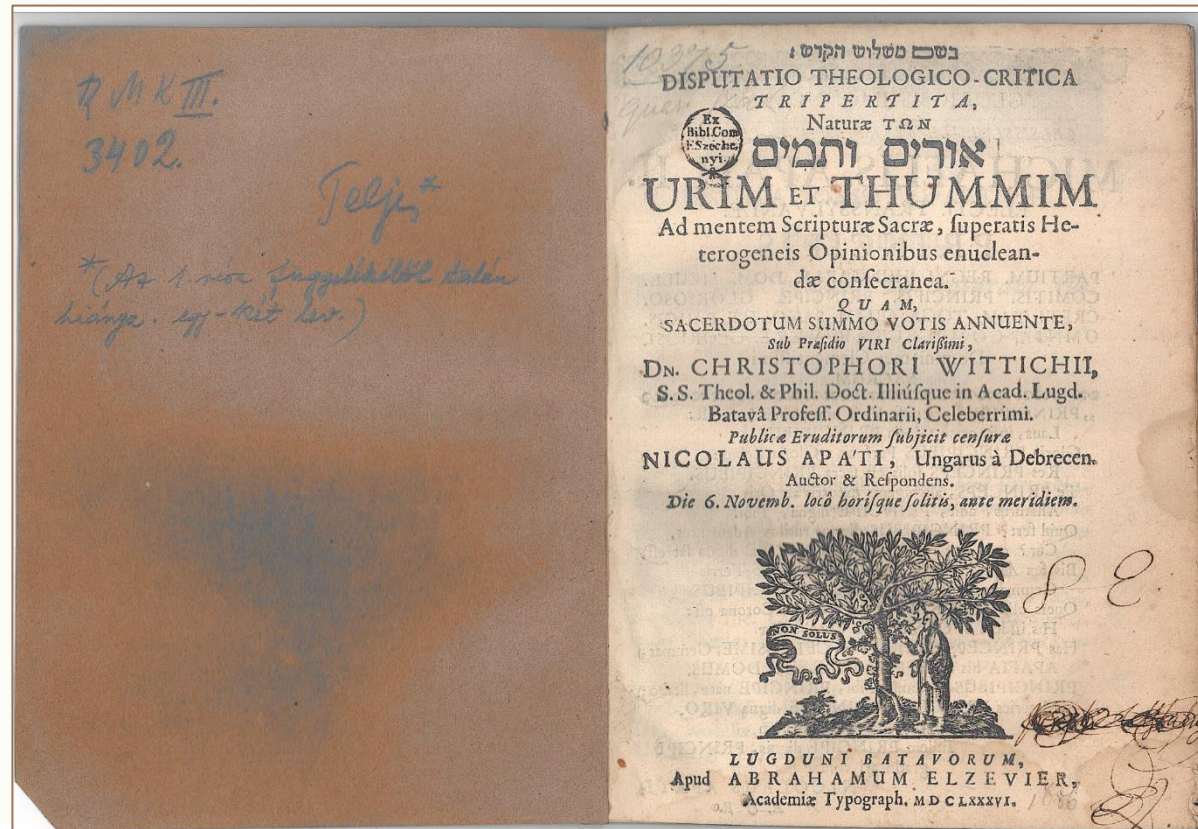 R M K III.
3402.
Teljes*
*(Az 1. rész függelékéből talán
hiányz. egy-két lev.)
10375
בשם משלוש הקדש :
DISPUTATIO THEOLOGICO-CRITICA
TRIPERTITA,
Naturæ ΤΩΝ
Ex
Bibl.Com
F.Széche.
nyi.
אורים ותמים
URIM ET THUMMIM
Ad mentem Scripturæ Sacræ, ſuperatis He-
terogeneis Opinionibus enuclean-
dæ conſecranea.
QUAM,
SACERDOTUM SUMMO VOTIS ANNUENTE,
Sub Præſidio VIRI Clarißimi,
DN. CHRISTOPHORI WITTICHII,
S. S. Theol. & Phil. Doct. Illiúſque in Acad. Lugd.
Batavâ Profeſſ. Ordinarii, Celeberrimi.
Publicæ Eruditorum ſubjicit cenſuræ
NICOLAUS APATI, Ungarus à Debrecen.
Auctor & Reſpondens.
Die 6. Novemb. locô horíſque ſolitis, ante meridiem.
NON SOLUS
LUGDUNI BATAVORUM,
Apud ABRAHAMUM ELZEVIER,
Academiæ Typograph. MDCLXXXVI.